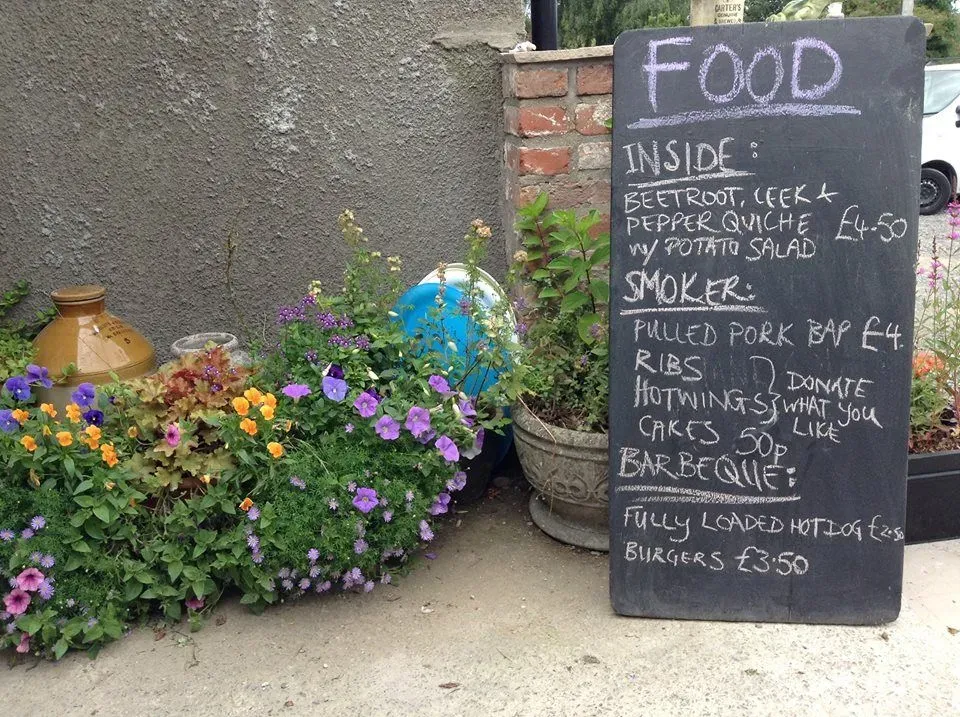 CARTER'S
FOOD
INSIDE:
BEETROOT, LEEK +
PEPPER QUICHE £4.50
W/ POTATO SALAD
SMOKER:
PULLED PORK BAP £4
RIBS
HOTWINGS } DONATE WHAT YOU LIKE
CAKES 50p
BARBEQUE:
FULLY LOADED HOTDOG £2.50
BURGERS £3.50